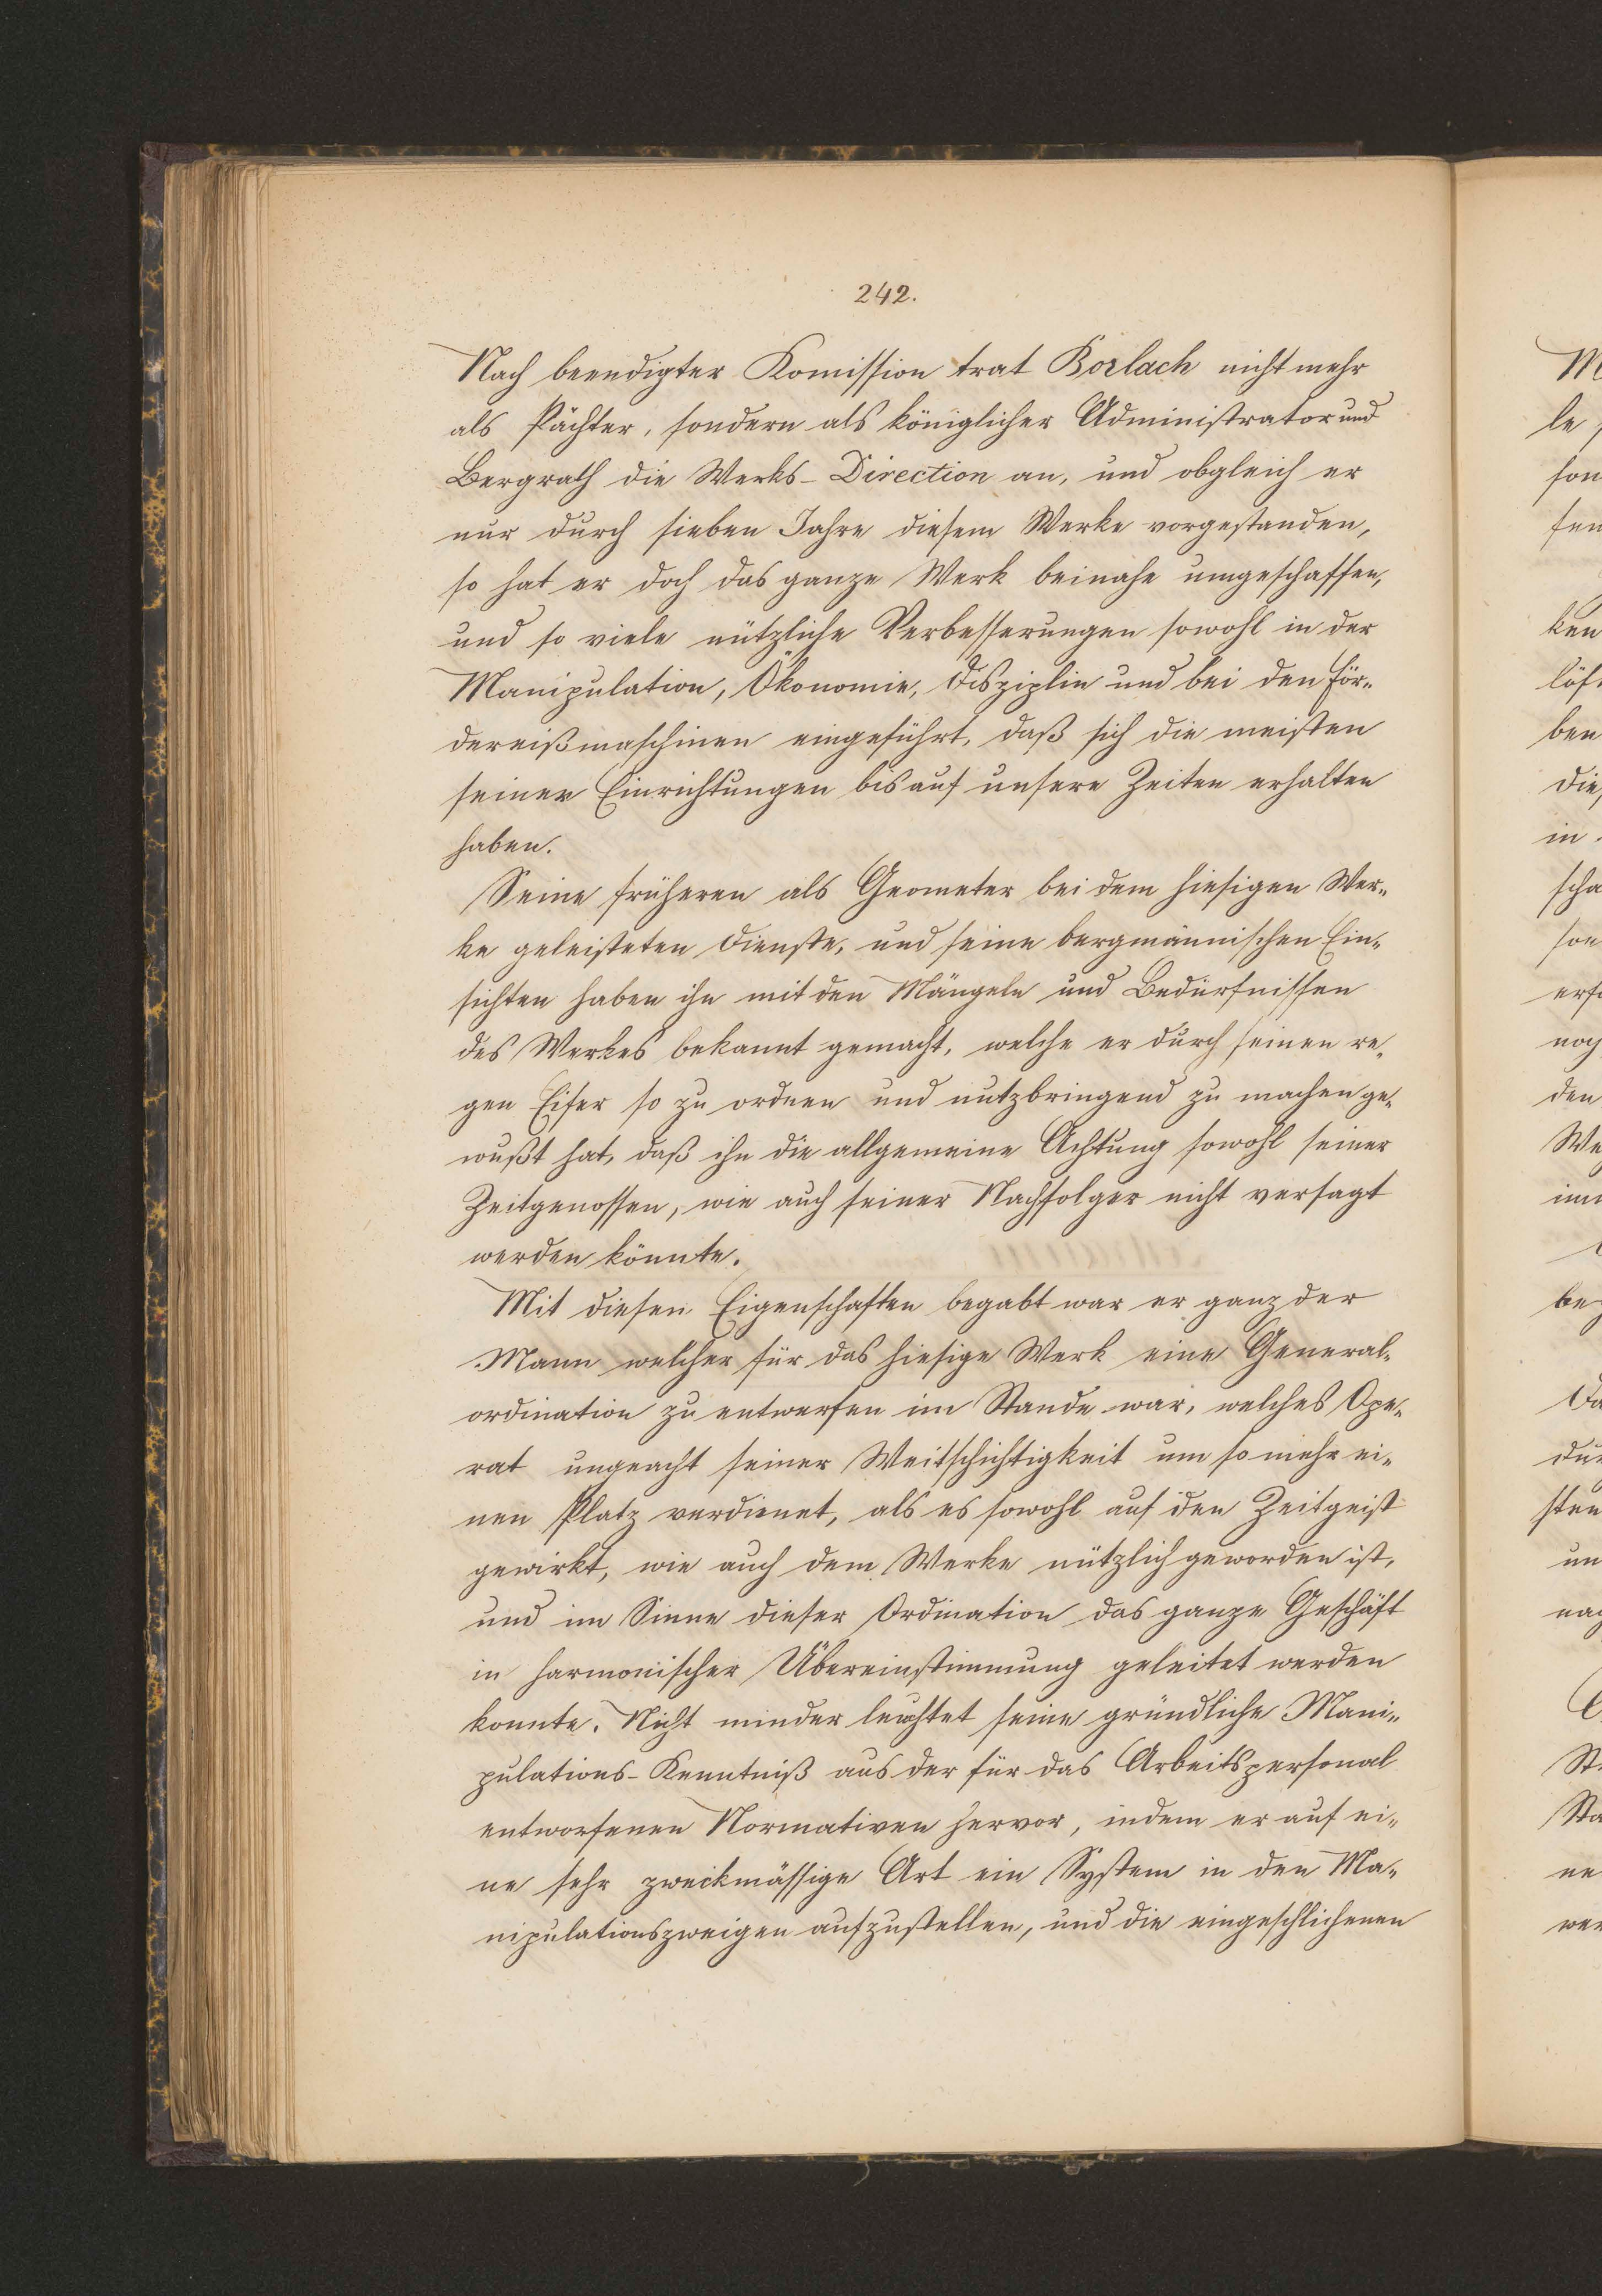 242.
Nach beendigter Komission trat Borlach nicht mehr
als Pächter, sondern als königlicher Administrator und
Bergrath die Werks-Direction an, und obgleich er
nur durch sieben Jahre diesem Werke vorgestanden,
so hat er doch das ganze Werk beinahe umgeschaffen,
und so viele nützliche Verbesserungen sowohl in der
Manipulation, Ökonomie, Disziplin und bei den För-
dereißmaschinen eingeführt, daß sich die meisten
seiner Einrichtungen bis auf unsere Zeiten erhalten
haben.
Seine früheren als Geometer bei dem hiesigen Wer-
ke geleisteten Dienste, und seine bergmännischen Ein-
sichten haben ihn mit den Mängeln und Bedürfnissen
des Werkes bekannt gemacht, welche er durch seinen re-
gen Eifer so zu ordnen und nutzbringend zu machen ge-
wußt hat, daß ihn die allgemeine Achtung sowohl seiner
Zeitgenossen, wie auch seiner Nachfolger nicht versagt
werden könnte.
Mit diesen Eigenschaften begabt war er ganz der
Mann welcher für das hiesige Werk eine General-
ordination zu entwerfen im Stande war, welches Ope-
rat ungeacht seiner Weitschichtigkeit um so mehr ei-
nen Platz verdienet, als es sowohl auf den Zeitgeist
gewirkt, wie auch dem Werke nützlich geworden ist,
und im Sinne dieser Ordination das ganze Geschäft
in harmonischer Übereinstimmung geleitet werden
konnte. Nicht minder leuchtet seine gründliche Mani-
pulations-Kenntniß aus der für das Arbeitspersonal
entworfenen Normativen hervor, indem er auf ei-
ne sehr zweckmässige Art ein System in den Ma-
nipulationszweigen aufzustellen, und die eingeschlichenen